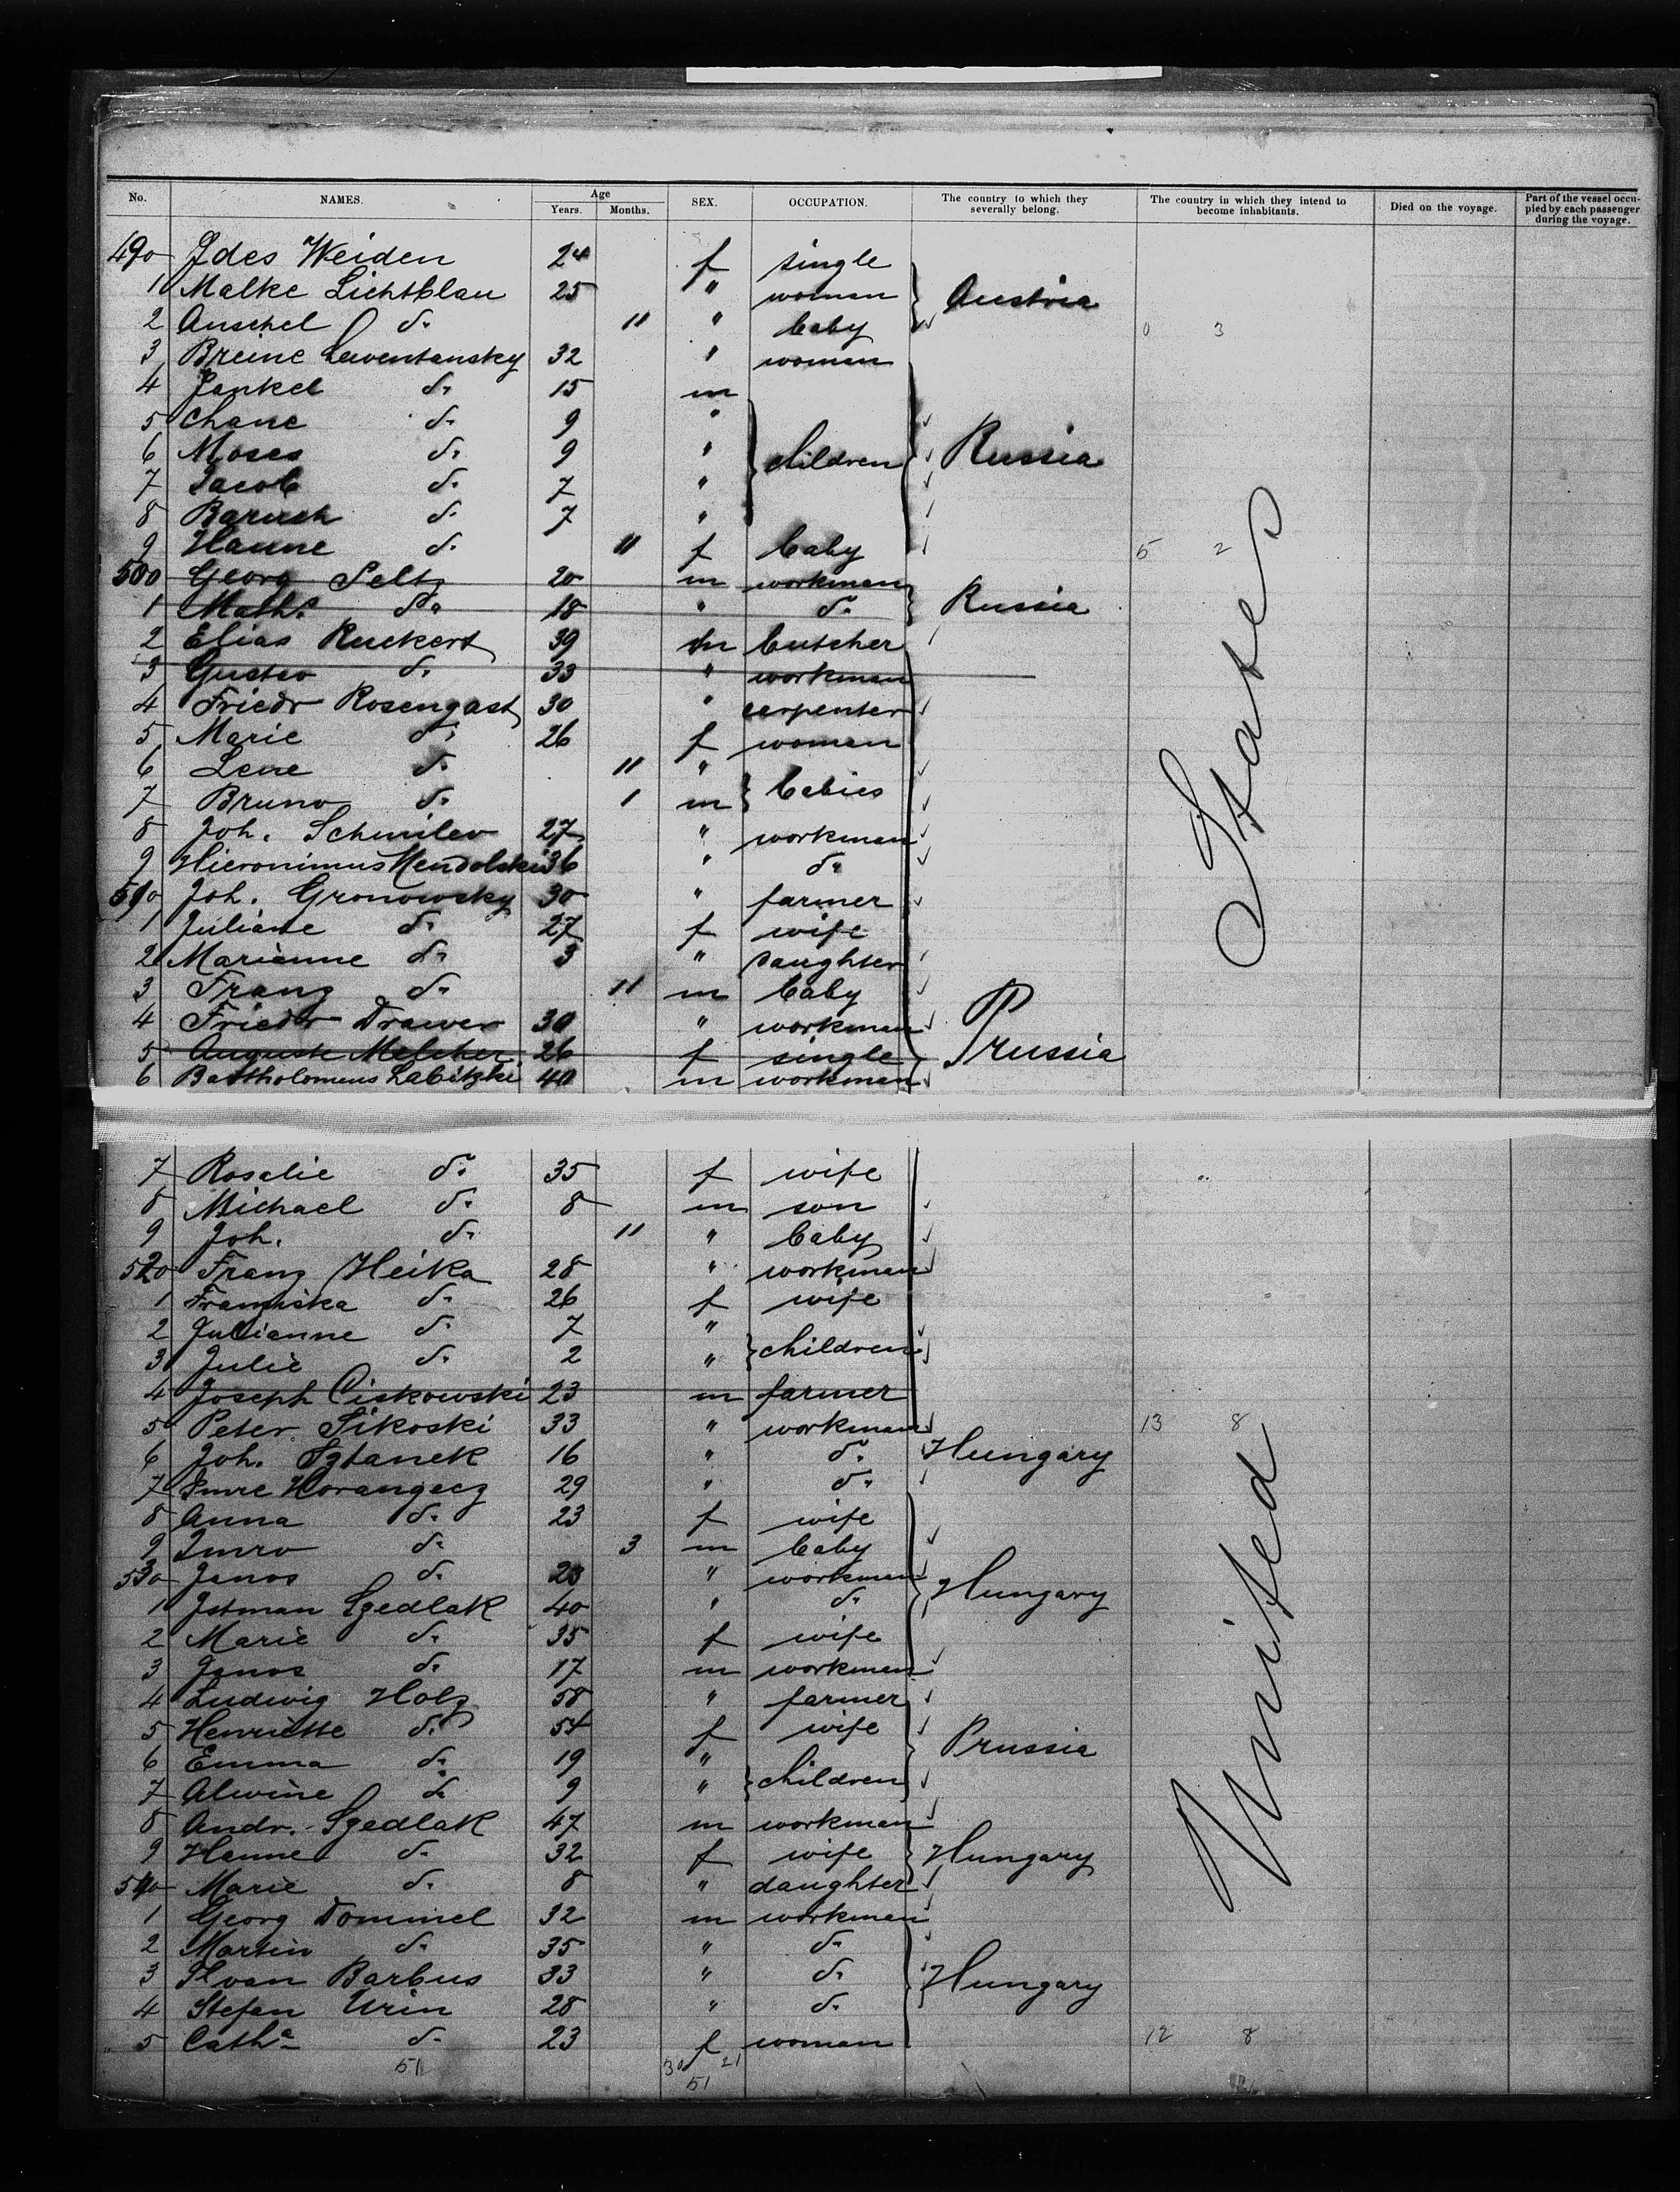 No. NAMES. Age Years. Months. SEX. OCCUPATION. The country to which they severally belong. The country in which they intend to become inhabitants. Died on the voyage. Part of the vessel occupied by each passenger during the voyage.
490 Ides Weiden 24 f single
1 Malke Lichtblau 25 " woman Austria
2 Anschel do 11 " baby 0 3
3 Breine Lewentansky 32 " woman
4 Jankel do 15 m
5 Chane do 9 "
6 Moses do 9 " children Russia
7 Jacob do 7 "
8 Baruch do 7 "
9 Hanne do 11 f baby 5 2
500 Georg Seltz 20 m workman
1 Math. do 18 " do Russia
2 Elias Ruckert 39 m butcher
3 Gustav do 33 " workman
4 Friedr Rosengast 30 " carpenter
5 Marie do 26 f woman
6 Lene do 11 "
7 Bruno do 1 m babies
8 Joh. Schmiler 27 " workman
9 Hieronimus Mendolski 36 " do
510 Joh. Gronowsky 30 " farmer
1 Juliane do 27 f wife
2 Marianne do 3 " daughter
3 Franz do 11 m baby
4 Friedr Drawer 30 " workman
5 Auguste Melcher 26 f single Prussia
6 Bartholomeus Labitzki 40 m workman
7 Rosalie do 35 f wife
8 Michael do 8 m son
9 Joh. do 11 " baby
520 Franz Heika 28 " workman
1 Franziska do 26 f wife
2 Julianne do 7 "
3 Julie do 2 " children
4 Joseph Ciskowski 23 m farmer
5 Peter Sikoski 33 " workman 13 8
6 Joh. Sztanek 16 " do Hungary
7 Imre Horangecz 29 " do
8 Anna do 23 f wife
9 Imro do 3 m baby
530 Janos do 23 " workman Hungary
1 Istman Szedlak 40 " do
2 Marie do 35 f wife
3 Janos do 17 m workman
4 Ludwig Holz 58 " farmer
5 Henriette do 54 f wife Prussia
6 Emma do 19 "
7 Alwine do 9 " children
8 Andr. Szedlak 47 m workman
9 Hanne do 32 f wife Hungary
540 Marie do 8 " daughter
1 Georg Dommel 32 m workman
2 Martin do 35 " do
3 Ilvan Barbus 33 " do Hungary
4 Stefan Urin 28 " do
5 Cath.e do 23 f woman 12 8
51 30 21
51
United States